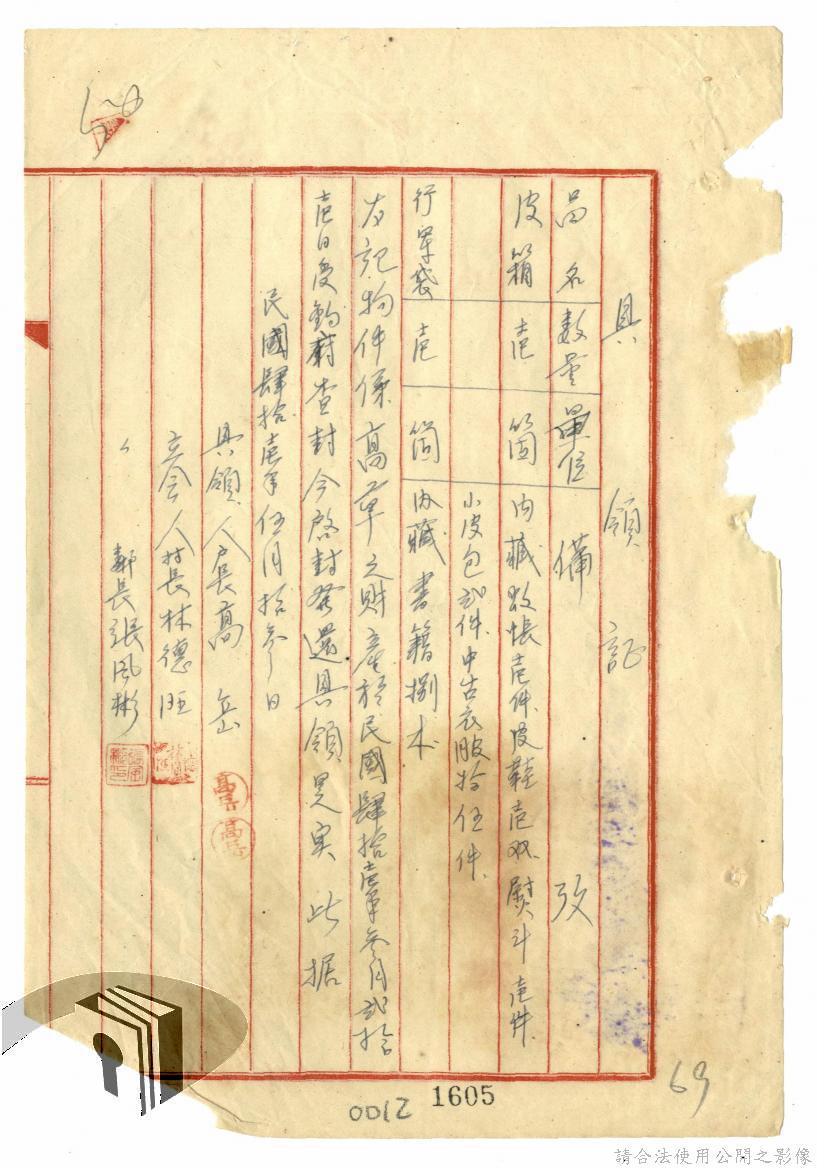 具領証
品名 数量 單位 備攷
皮箱 壱 箇 內藏蚊帳壱件皮鞋壱双熨斗壱件
小皮包弐件中古衣服拾伍件
行軍袋 壱 箇 內藏書籍捌本
右記物件係高草之財產於民國肆拾壱年参月弐拾
壱日受鈞府查封今啓封發還具領是实此据
民國肆拾壱年伍月拾参日
具領人戶長高岳
立会人村長林德旺
〃鄰長張风彬
高岳
高岳
0012
1605
69
請合法使用公開之影像